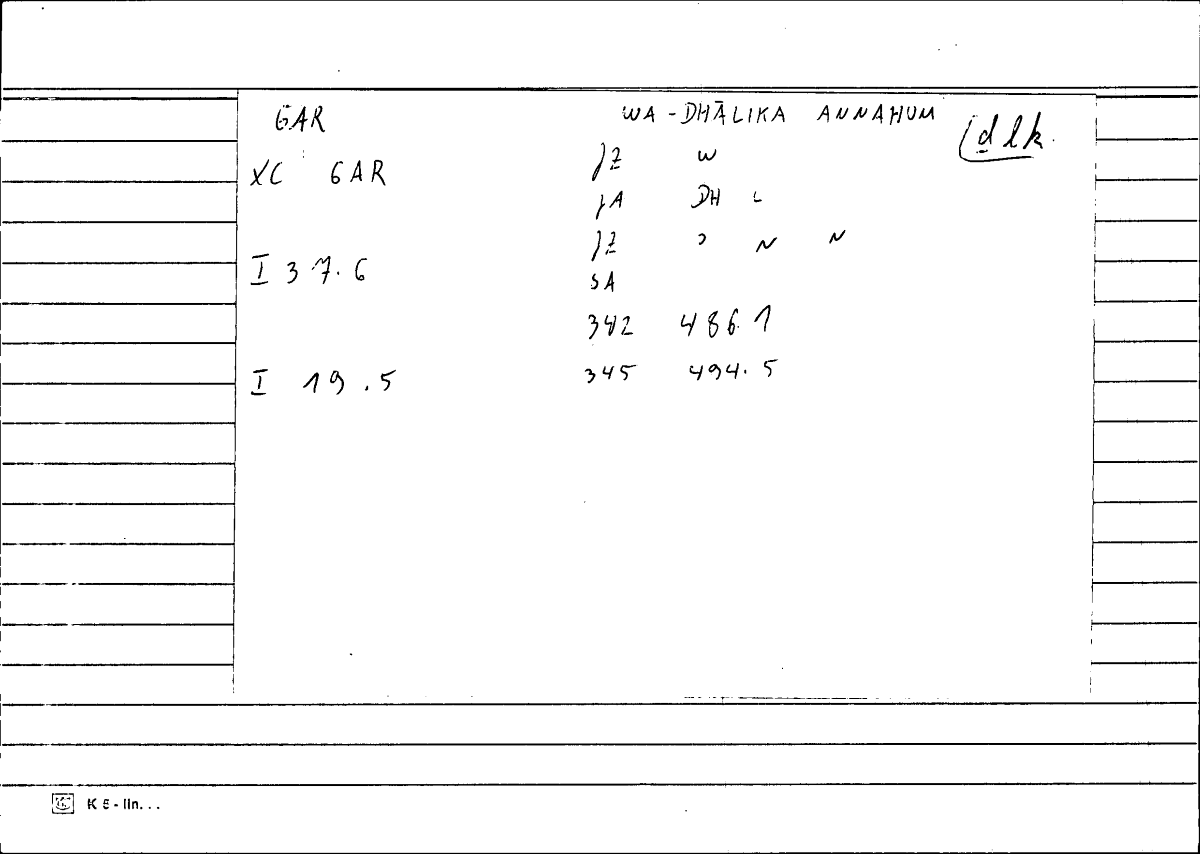 GAR WA-DHĀLIKA ANNAHUM (ḏlk.
XC GAR JZ W
JA DH L
JZ ɔ N N
I 37.6 SA
342 486.1
I 19.5 345 494.5
K 5 - lin...